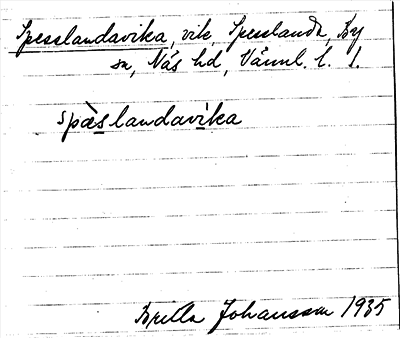 Spesslandavika, vik, Spesslanda, By
sn, Näs hd, Värml. l. 1.
spæ̀slandavika
Britta Johansson 1935